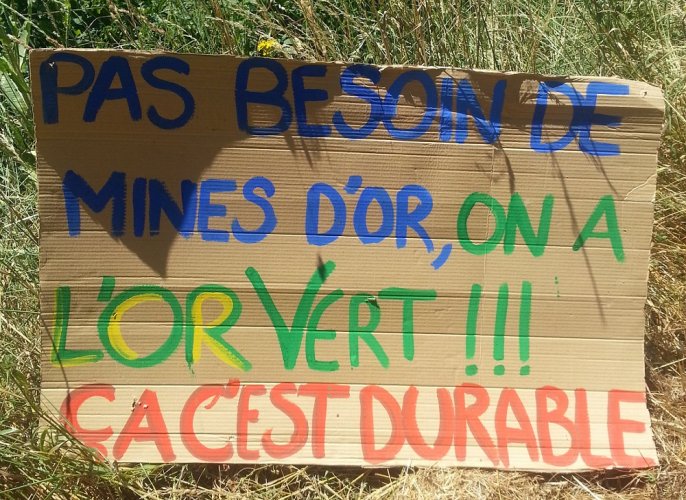 PAS BESOIN DE
MINES D'OR, ON A
L'OR VERT !!!
ÇA C'EST DURABLE